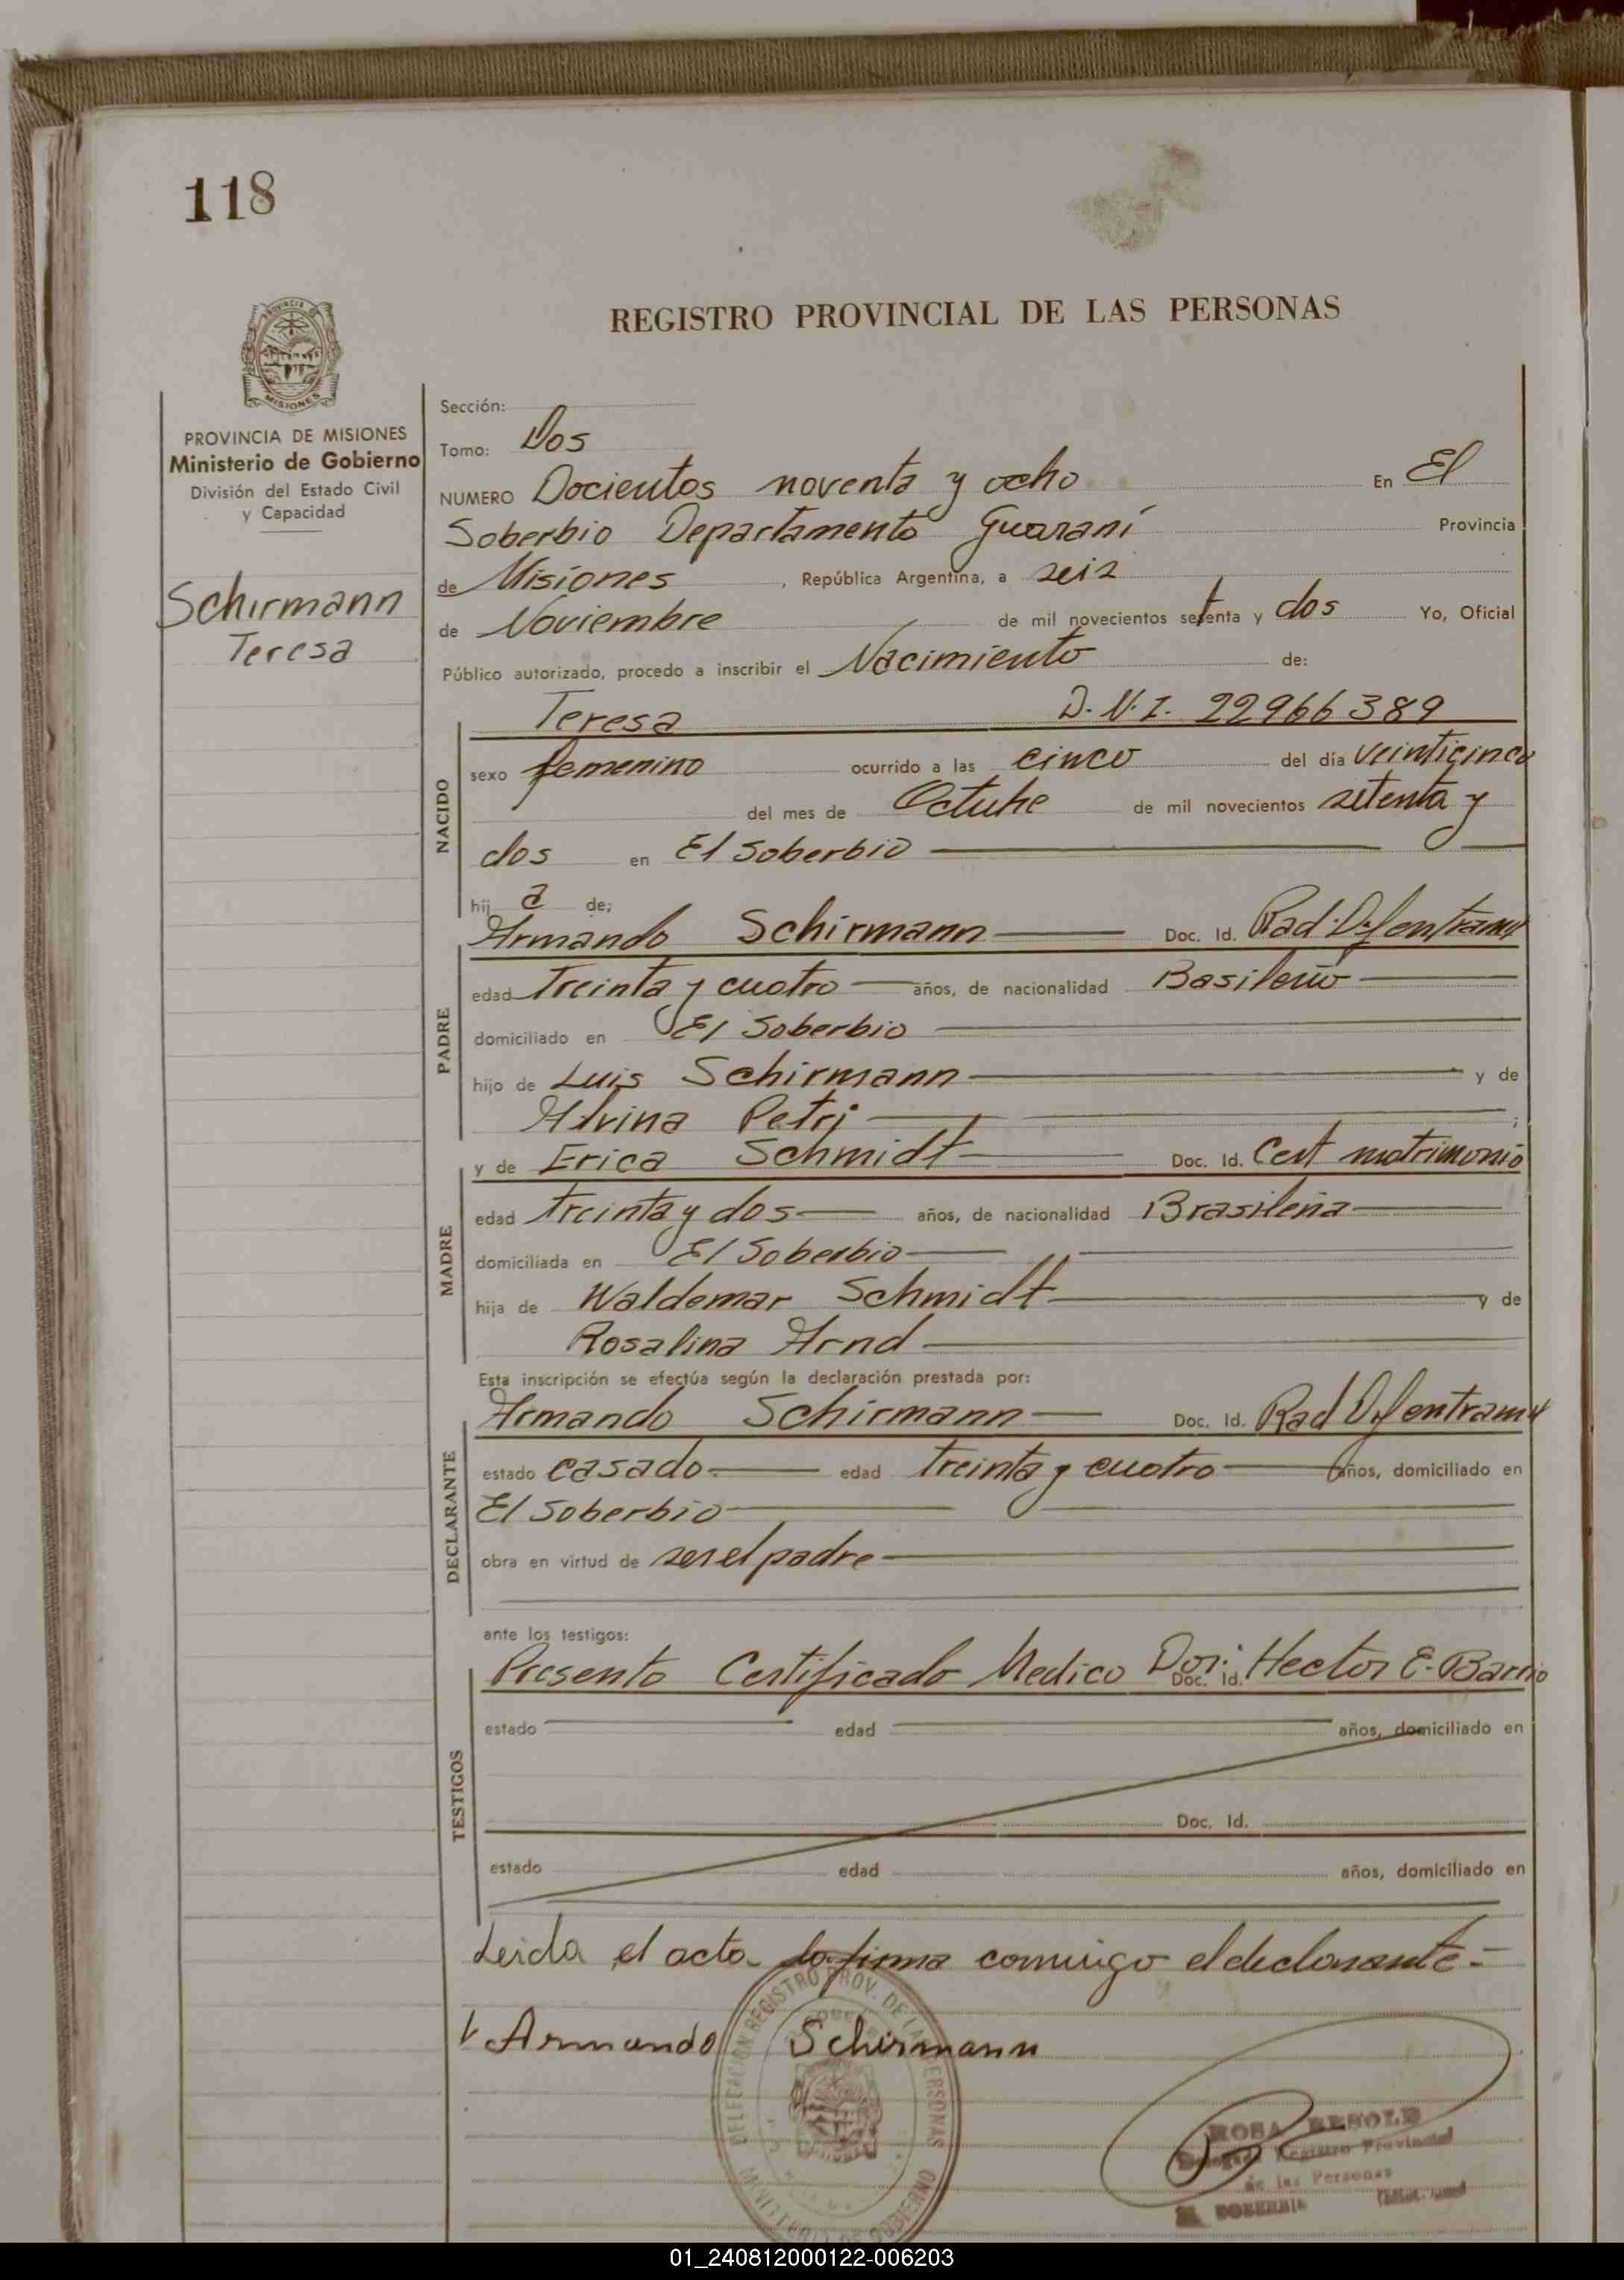 118
REGISTRO PROVINCIAL DE LAS PERSONAS
MISIONES
PROVINCIA DE MISIONES
Ministerio de Gobierno
División del Estado Civil
y Capacidad
Schirmann
Teresa
Sección:
Tomo: Dos
NUMERO Docientos noventa y ocho En El
Soberbio Departamento Guaraní Provincia
de Misiones , República Argentina, a seis
de Noviembre de mil novecientos setenta y dos Yo, Oficial
Público autorizado, procedo a inscribir el Nacimiento de:
Teresa D.N.I. 22966389
NACIDO
sexo femenino ocurrido a las cinco del día veinticinco
del mes de Octubre de mil novecientos setenta y
dos en El Soberbio
hij a de;
Armando Schirmann Doc. Id. Rad.
PADRE
edad Treinta y cuatro años, de nacionalidad Basileño
domiciliado en El Soberbio
hijo de Luis Schirmann y de
Alvina Petri ;
y de Erica Schmidt Doc. Id. Cert matrimonio
MADRE
edad treinta y dos años, de nacionalidad Brasileña
domiciliada en El Soberbio
hija de Waldemar Schmidt y de
Rosalina Arnd
Esta inscripción se efectúa según la declaración prestada por:
Armando Schirmann Doc. Id. Rad
DECLARANTE
estado casado edad treinta y cuatro años, domiciliado en
El Soberbio
obra en virtud de ser el padre
ante los testigos:
Presento Certificado Medico Dor: Doc. Id. Hector E. Barrio
TESTIGOS
estado edad años, domiciliado en
Doc. Id.
estado edad años, domiciliado en
Leida el acta la firma conmigo el declarante.=
Armando Schirmann
DELEGACION REGISTRO PROV. DE LAS PERSONAS
ROSA
Registro Provincial
de las Personas
EL SOBERBIO
01_240812000122-006203